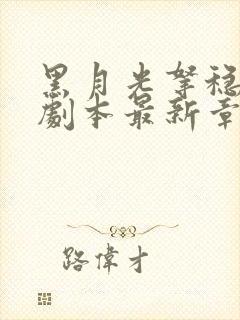 黑月光拏穩BE
劇本最新章
路偉才